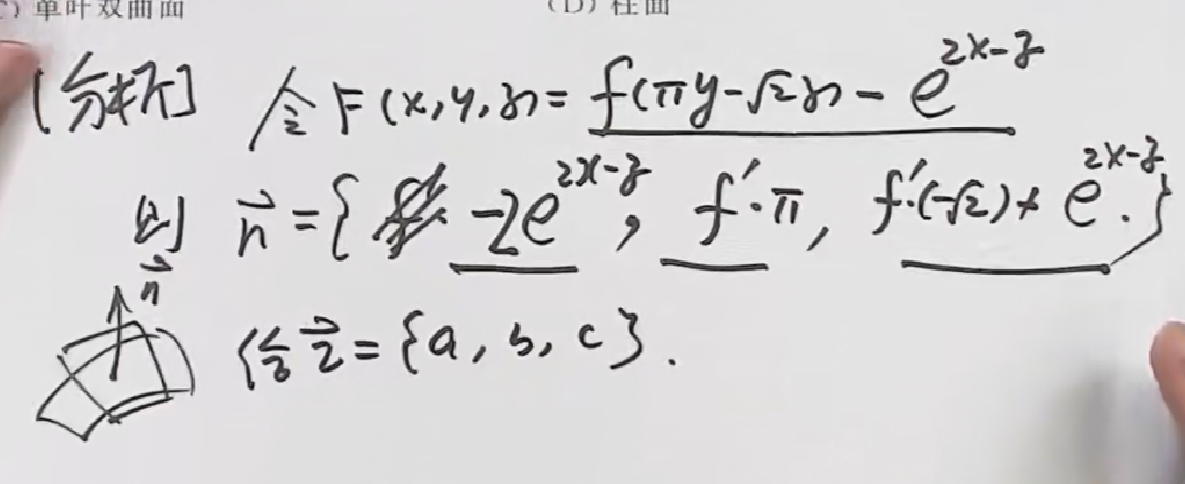 ) 单叶双曲面 (D) 柱面
[分析] 令F(x,y,z)=f(πy-√2z)-e^{2x-z}
则 \vec{n}={-2e^{2x-z}, f'·π, f'·(-√2)+e^{2x-z}.}
\vec{n}
\vec{τ}={a,b,c}.